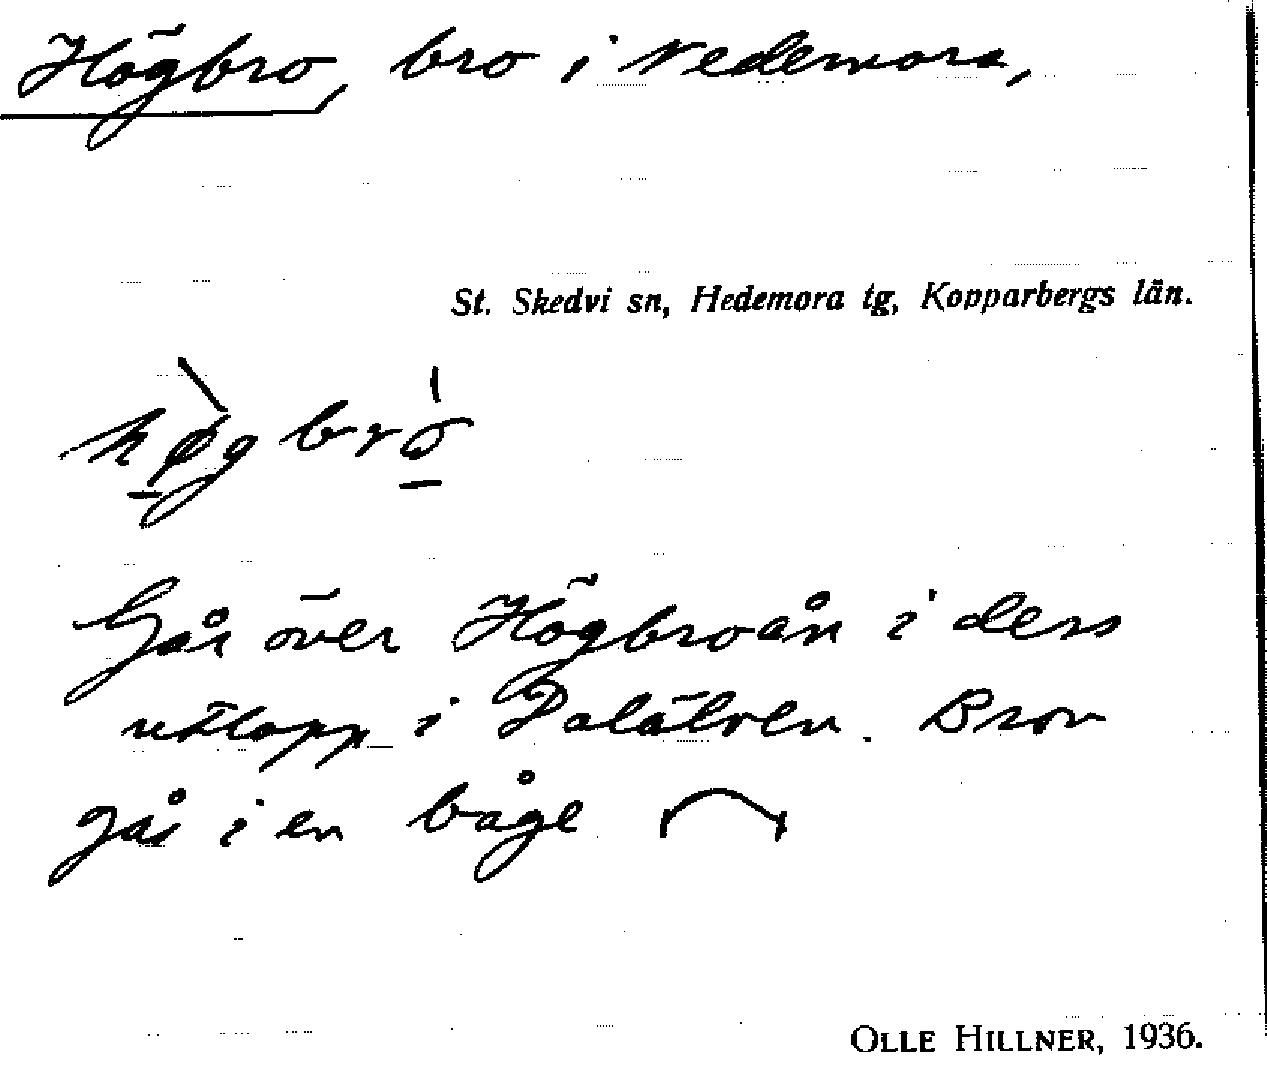 Högbro, bro i Nedernora,
St. Skedvi sn, Hedemora tg, Kopparbergs län.
høgbrō
Går över Högbroån i dess
utlopp i Dalälven. Bron
går i en båge
OLLE HILLNER, 1936.